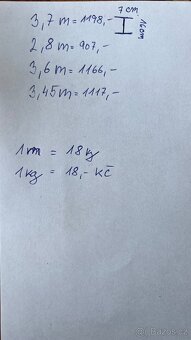 3,7 m = 1198,-
7 cm
14 cm
2,8 m = 907,-
3,6 m = 1166,-
3,45 m = 1117,-
1 m = 18 kg
1 kg = 18,- kč